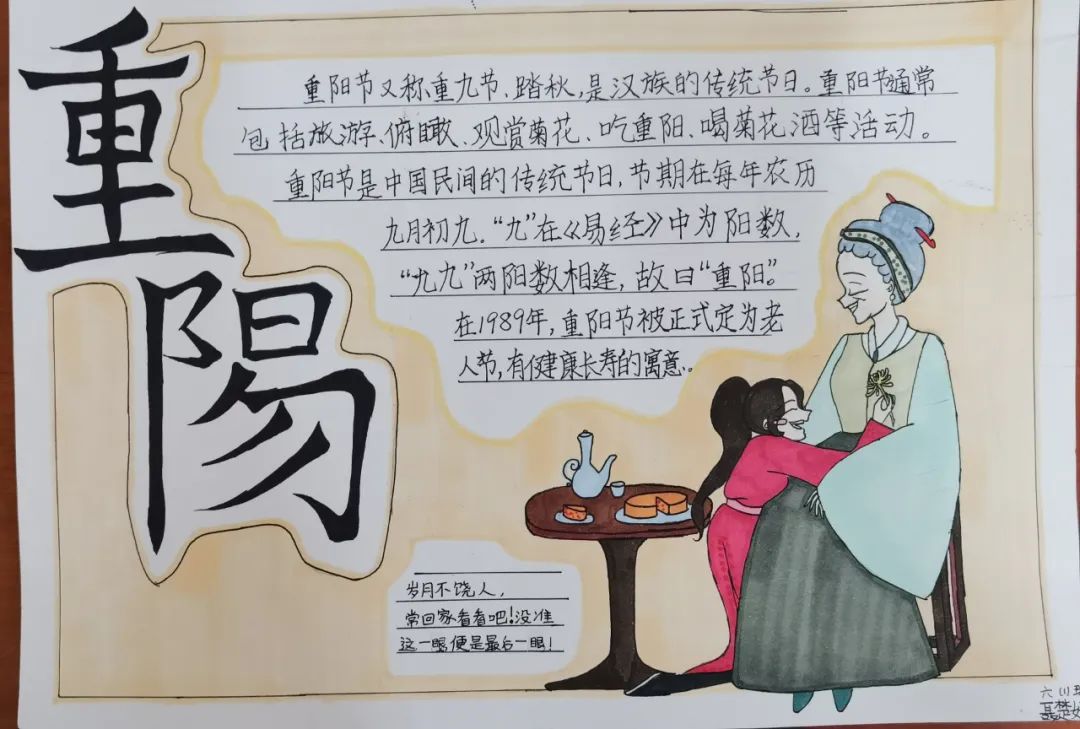 重
陽
重阳节又称重九节、踏秋,是汉族的传统节日。重阳节通常
包括旅游、俯瞰、观赏菊花、吃重阳、喝菊花洒等活动。
重阳节是中国民间的传统节日,节期在每年农历
九月初九.“九”在《易经》中为阳数,
“九九”两阳数相逢,故曰“重阳”。
在1989年,重阳节被正式定为老
人节,有健康长寿的寓意。
岁月不饶人,
常回家看看吧!没准
这一眼便是最后一眼!
六(1)
聂楚